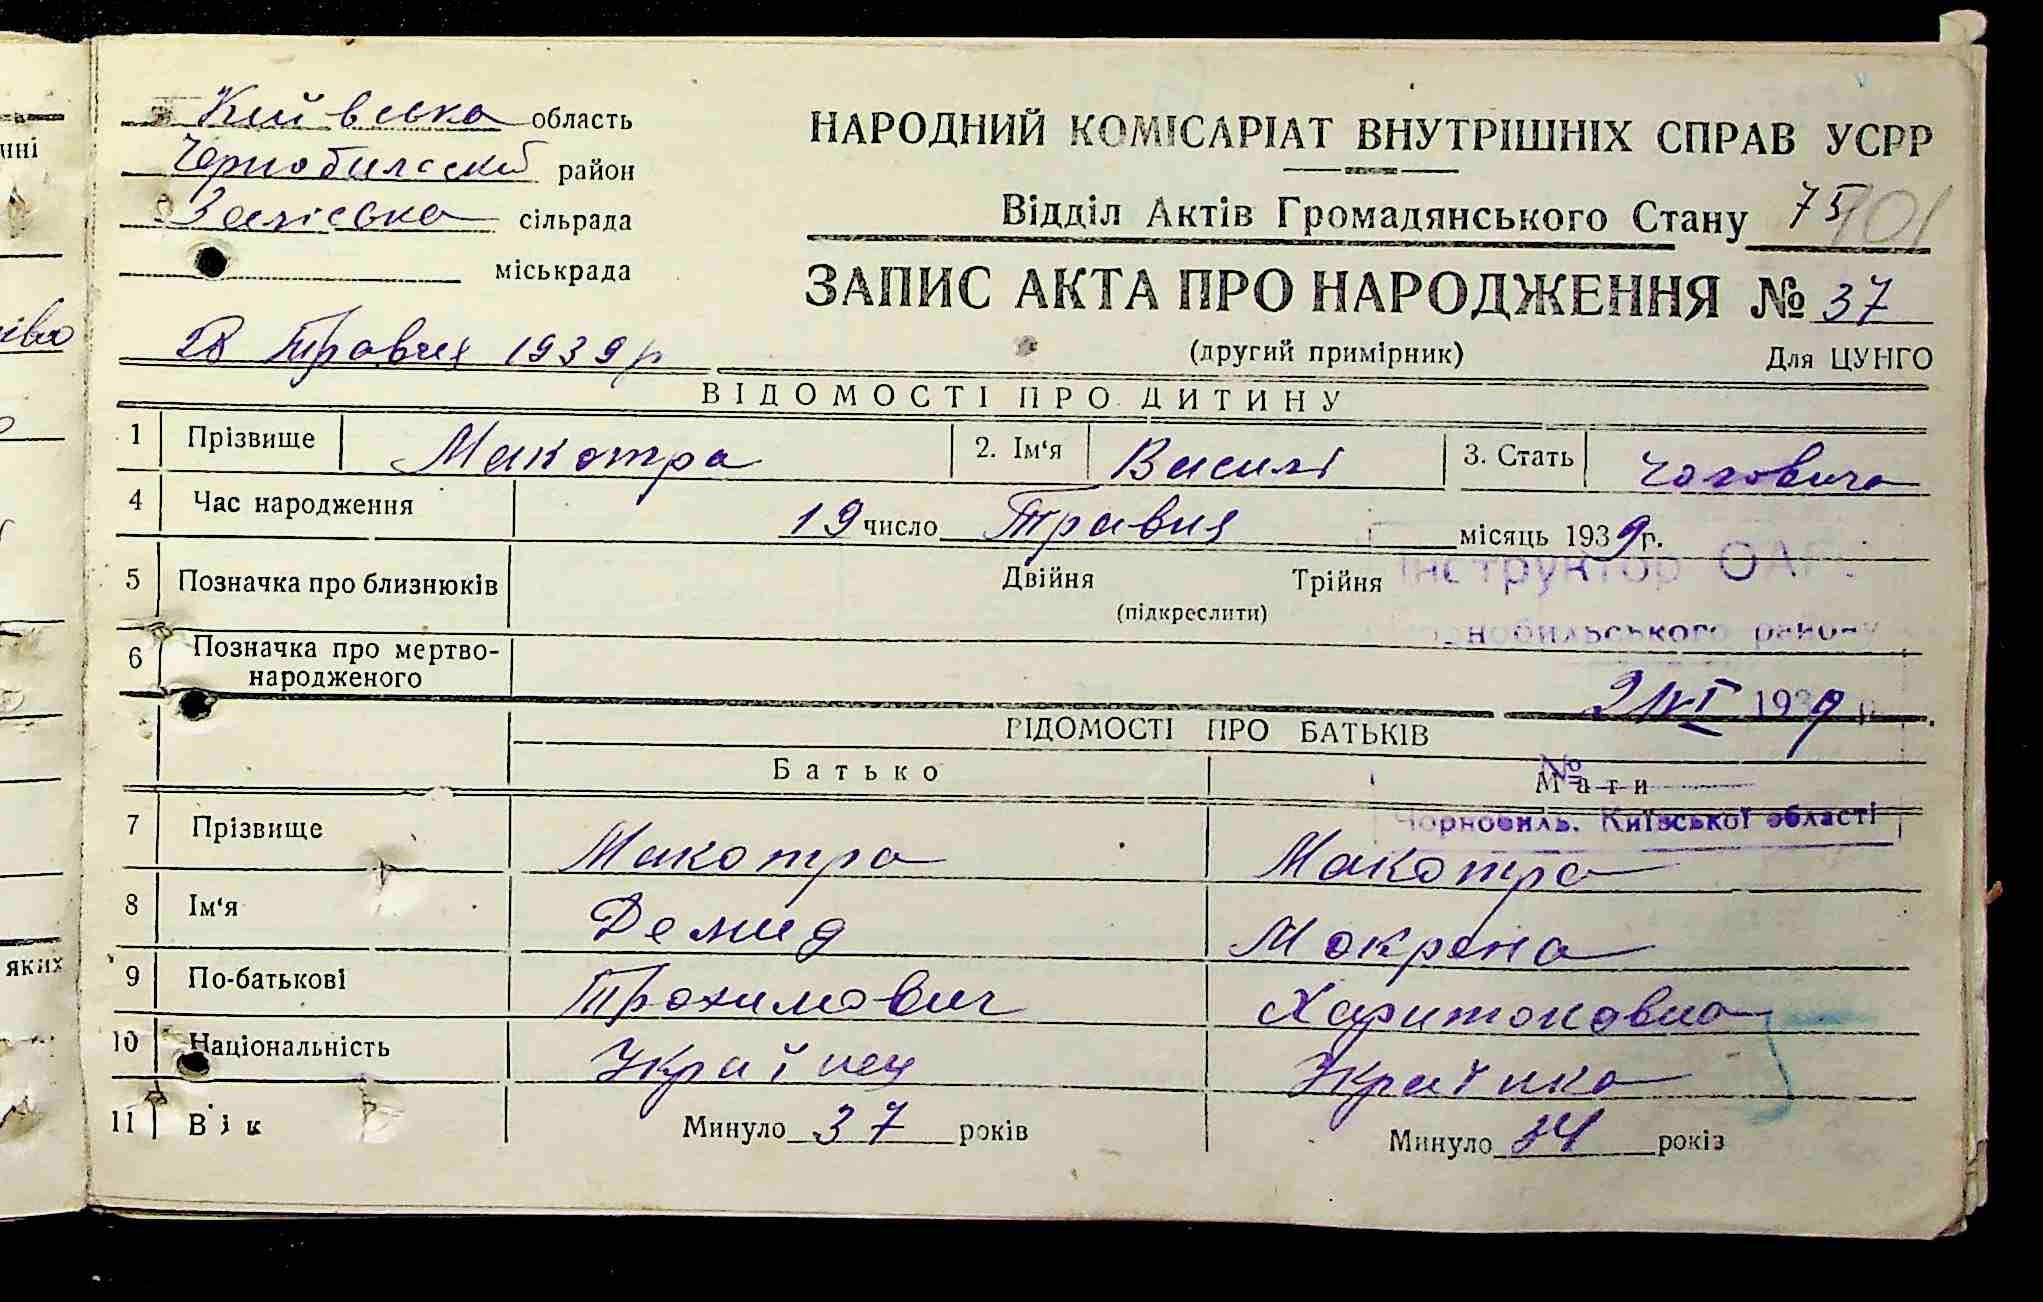 Київська область
Чернобильский район
Залісська сільрада
міськрада
28 Травня 1939 р
НАРОДНИЙ КОМІСАРІАТ ВНУТРІШНІХ СПРАВ УСРР
Відділ Актів Громадянського Стану 75 101
ЗАПИС АКТА ПРО НАРОДЖЕННЯ № 37
(другий примірник) Для ЦУНГО
ВІДОМОСТІ ПРО ДИТИНУ
1 Прізвище Макотра 2. Ім'я Василі 3. Стать Чоловича
4 Час народження 19 число Травня місяць 1939 г.
Інструктор ОАГС
5 Позначка про близнюків Двійня Трійня
(підкреслити)
рнобильського району
6 Позначка про мертво-
народженого
2/VI 1939 р.
ВІДОМОСТІ ПРО БАТЬКІВ
Батько Мати
№
Чорнобиль, Київської області
7 Прізвище Макотра Макотра
8 Ім'я Демид Мокрена
9 По-батькові Трохимович Харитоновна
10 Національність Украінец Украінка
11 Вік Минуло 37 років Минуло 34 років
яких